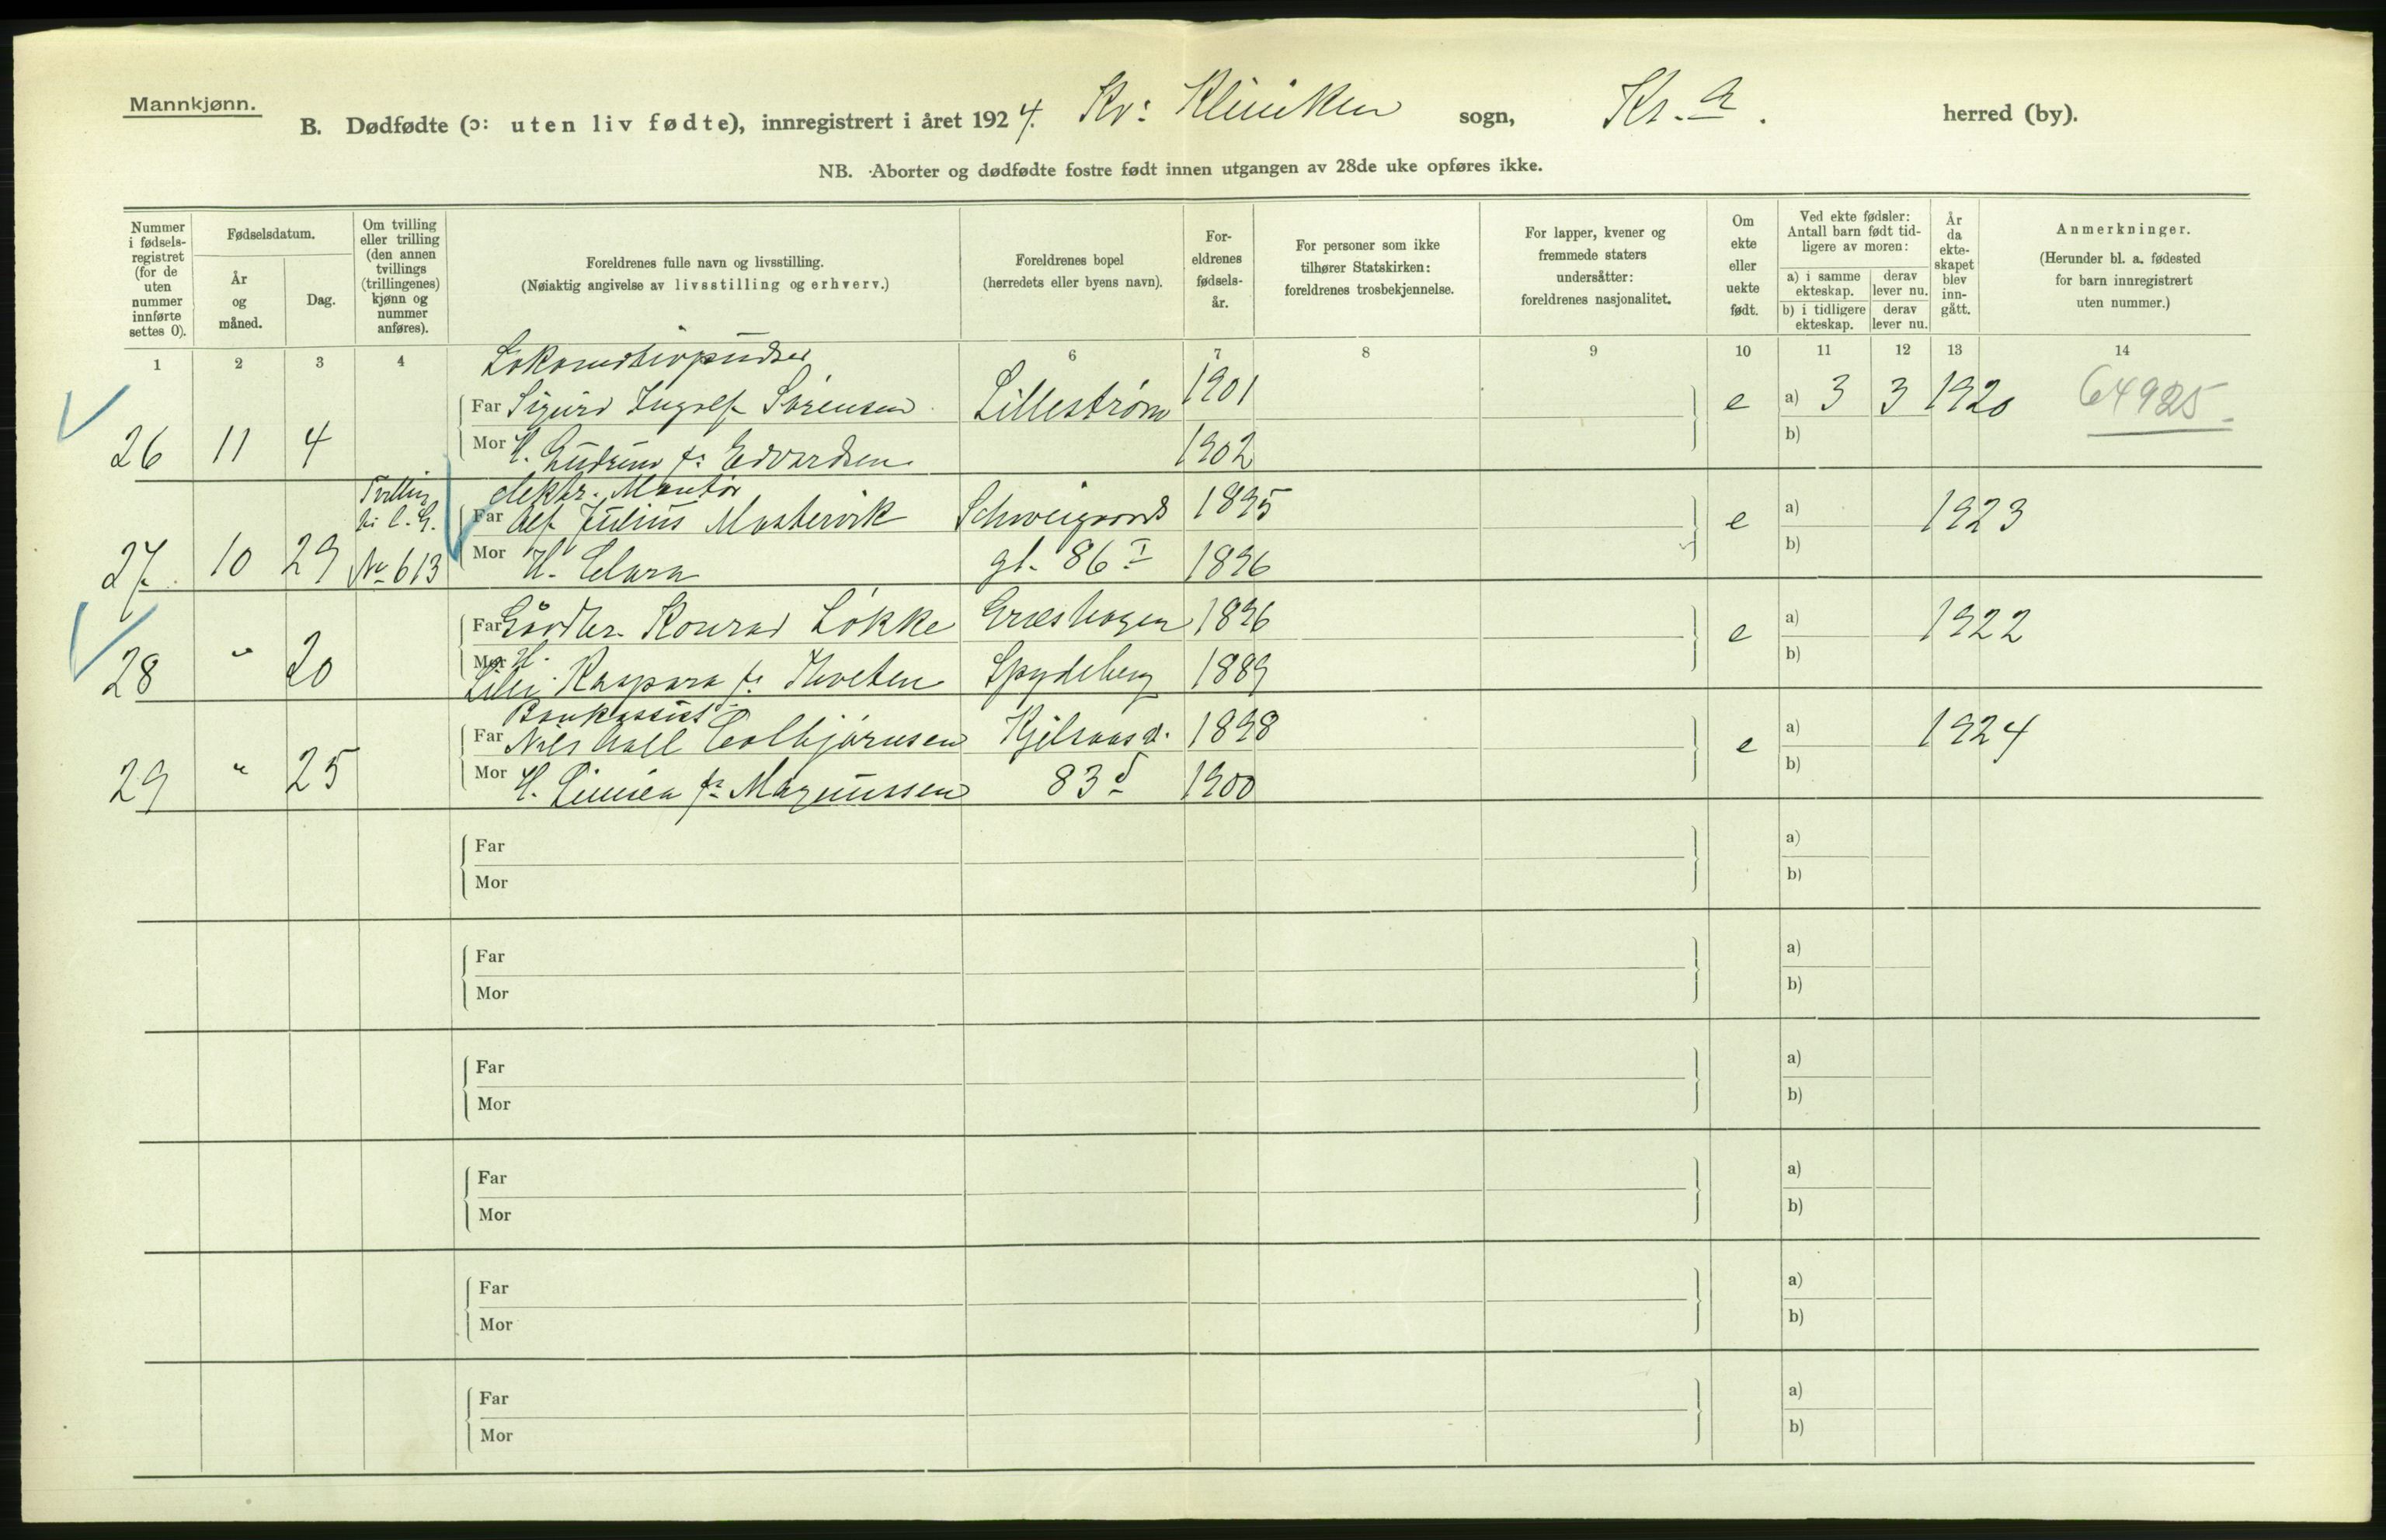 Mannkjønn.
B. Dødfødte (ɔ: uten liv fødte), innregistrert i året 1924. Kv: Kliniken sogn, Kr.a. herred (by).
NB. Aborter og dødfødte fostre født innen utgangen av 28de uke opføres ikke.
Nummer i fødsels-registret (for de uten nummer innførte settes 0).
Fødselsdatum.
År og måned.
Dag.
Om tvilling eller trilling (den annen tvillings (trillingenes) kjønn og nummer anføres).
Foreldrenes fulle navn og livsstilling.
(Nøiaktig angivelse av livsstilling og erhverv.)
Foreldrenes bopel
(herredets eller byens navn).
For-eldrenes fødsels-år.
For personer som ikke tilhører Statskirken: foreldrenes trosbekjennelse.
For lapper, kvener og fremmede staters undersåtter: foreldrenes nasjonalitet.
Om ekte eller uekte født.
Ved ekte fødsler: Antall barn født tid-ligere av moren:
a) i samme ekteskap.
derav lever nu.
b) i tidligere ekteskap.
derav lever nu.
År da ekte-skapet blev inn-gått.
Anmerkninger.
(Herunder bl. a. fødested for barn innregistrert uten nummer.)
1 2 3 4 6 7 8 9 10 11 12 13 14
Lokomotivpudser
Far Sigurd Ingolf Sørensen Lillestrøm 1901 e a) 3 3 1920 64925
26 11 4 Mor H. Gudrun f: Edvardsen 1902 b)
Tvilling elektr. Montør
Far Alf Julius Mastervik Schweigaards 1895 e a) 1923
27. 10 29 No 613 Mor H. Clara gt. 86 I 1896 b)
Far Gårdbr. Konrad Løkke Græshagen 1896 e a) 1922
28 " 20 Mor H. Kaspara f: Tveten Spydeberg 1889 b)
Bankassist.
Far Nils Colbjørnsen Kjelsaas v. 1898 e a) 1924
29 " 25 Mor H. Linnea f: Magnussen 83 d 1900 b)
Far a)
Mor b)
Far a)
Mor b)
Far a)
Mor b)
Far a)
Mor b)
Far a)
Mor b)
Far a)
Mor b)